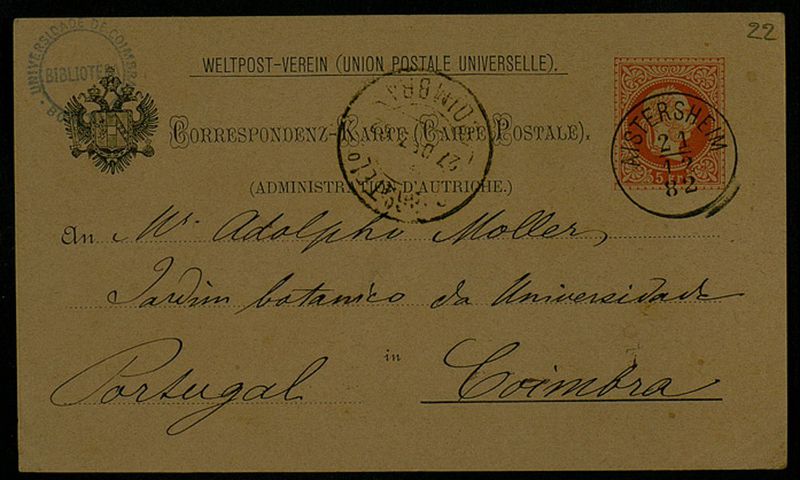 22
UNIVERSIDADE DE COIMBRA
WELTPOST-VEREIN (UNION POSTALE UNIVERSELLE).
CORRESPONDENZ-KARTE (CARTE POSTALE).
(ADMINISTRATION D'AUTRICHE.)
COIMBRA
27
AISTERSHEIM
21
12
82
An Mr. Adolpho Moller,
Jardim botanico da Universidade
in Coimbra
Portugal